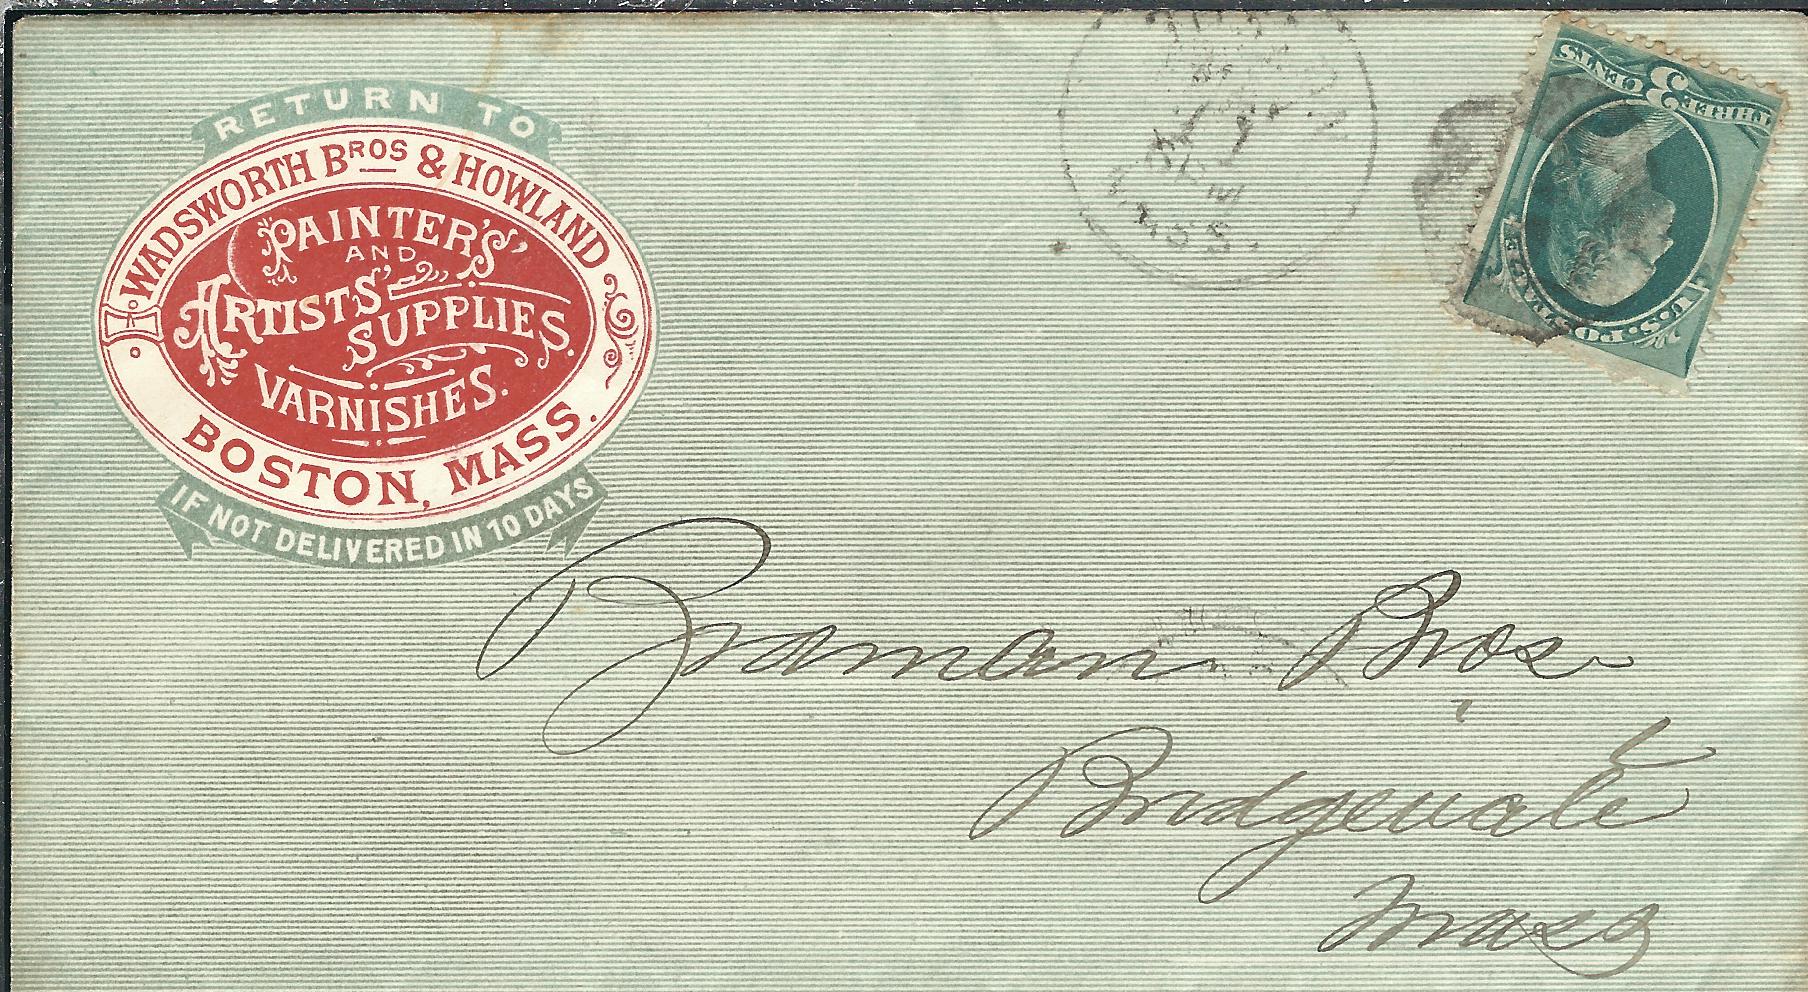 RETURN TO
WADSWORTH BROS & HOWLAND
PAINTER'S'
AND
ARTISTS'
SUPPLIES.
VARNISHES.
BOSTON, MASS.
IF NOT DELIVERED IN 10 DAYS
MASS.
THREE 3 CENTS
U.S. POSTAGE
Braman Bros
Bridgewate
Mass